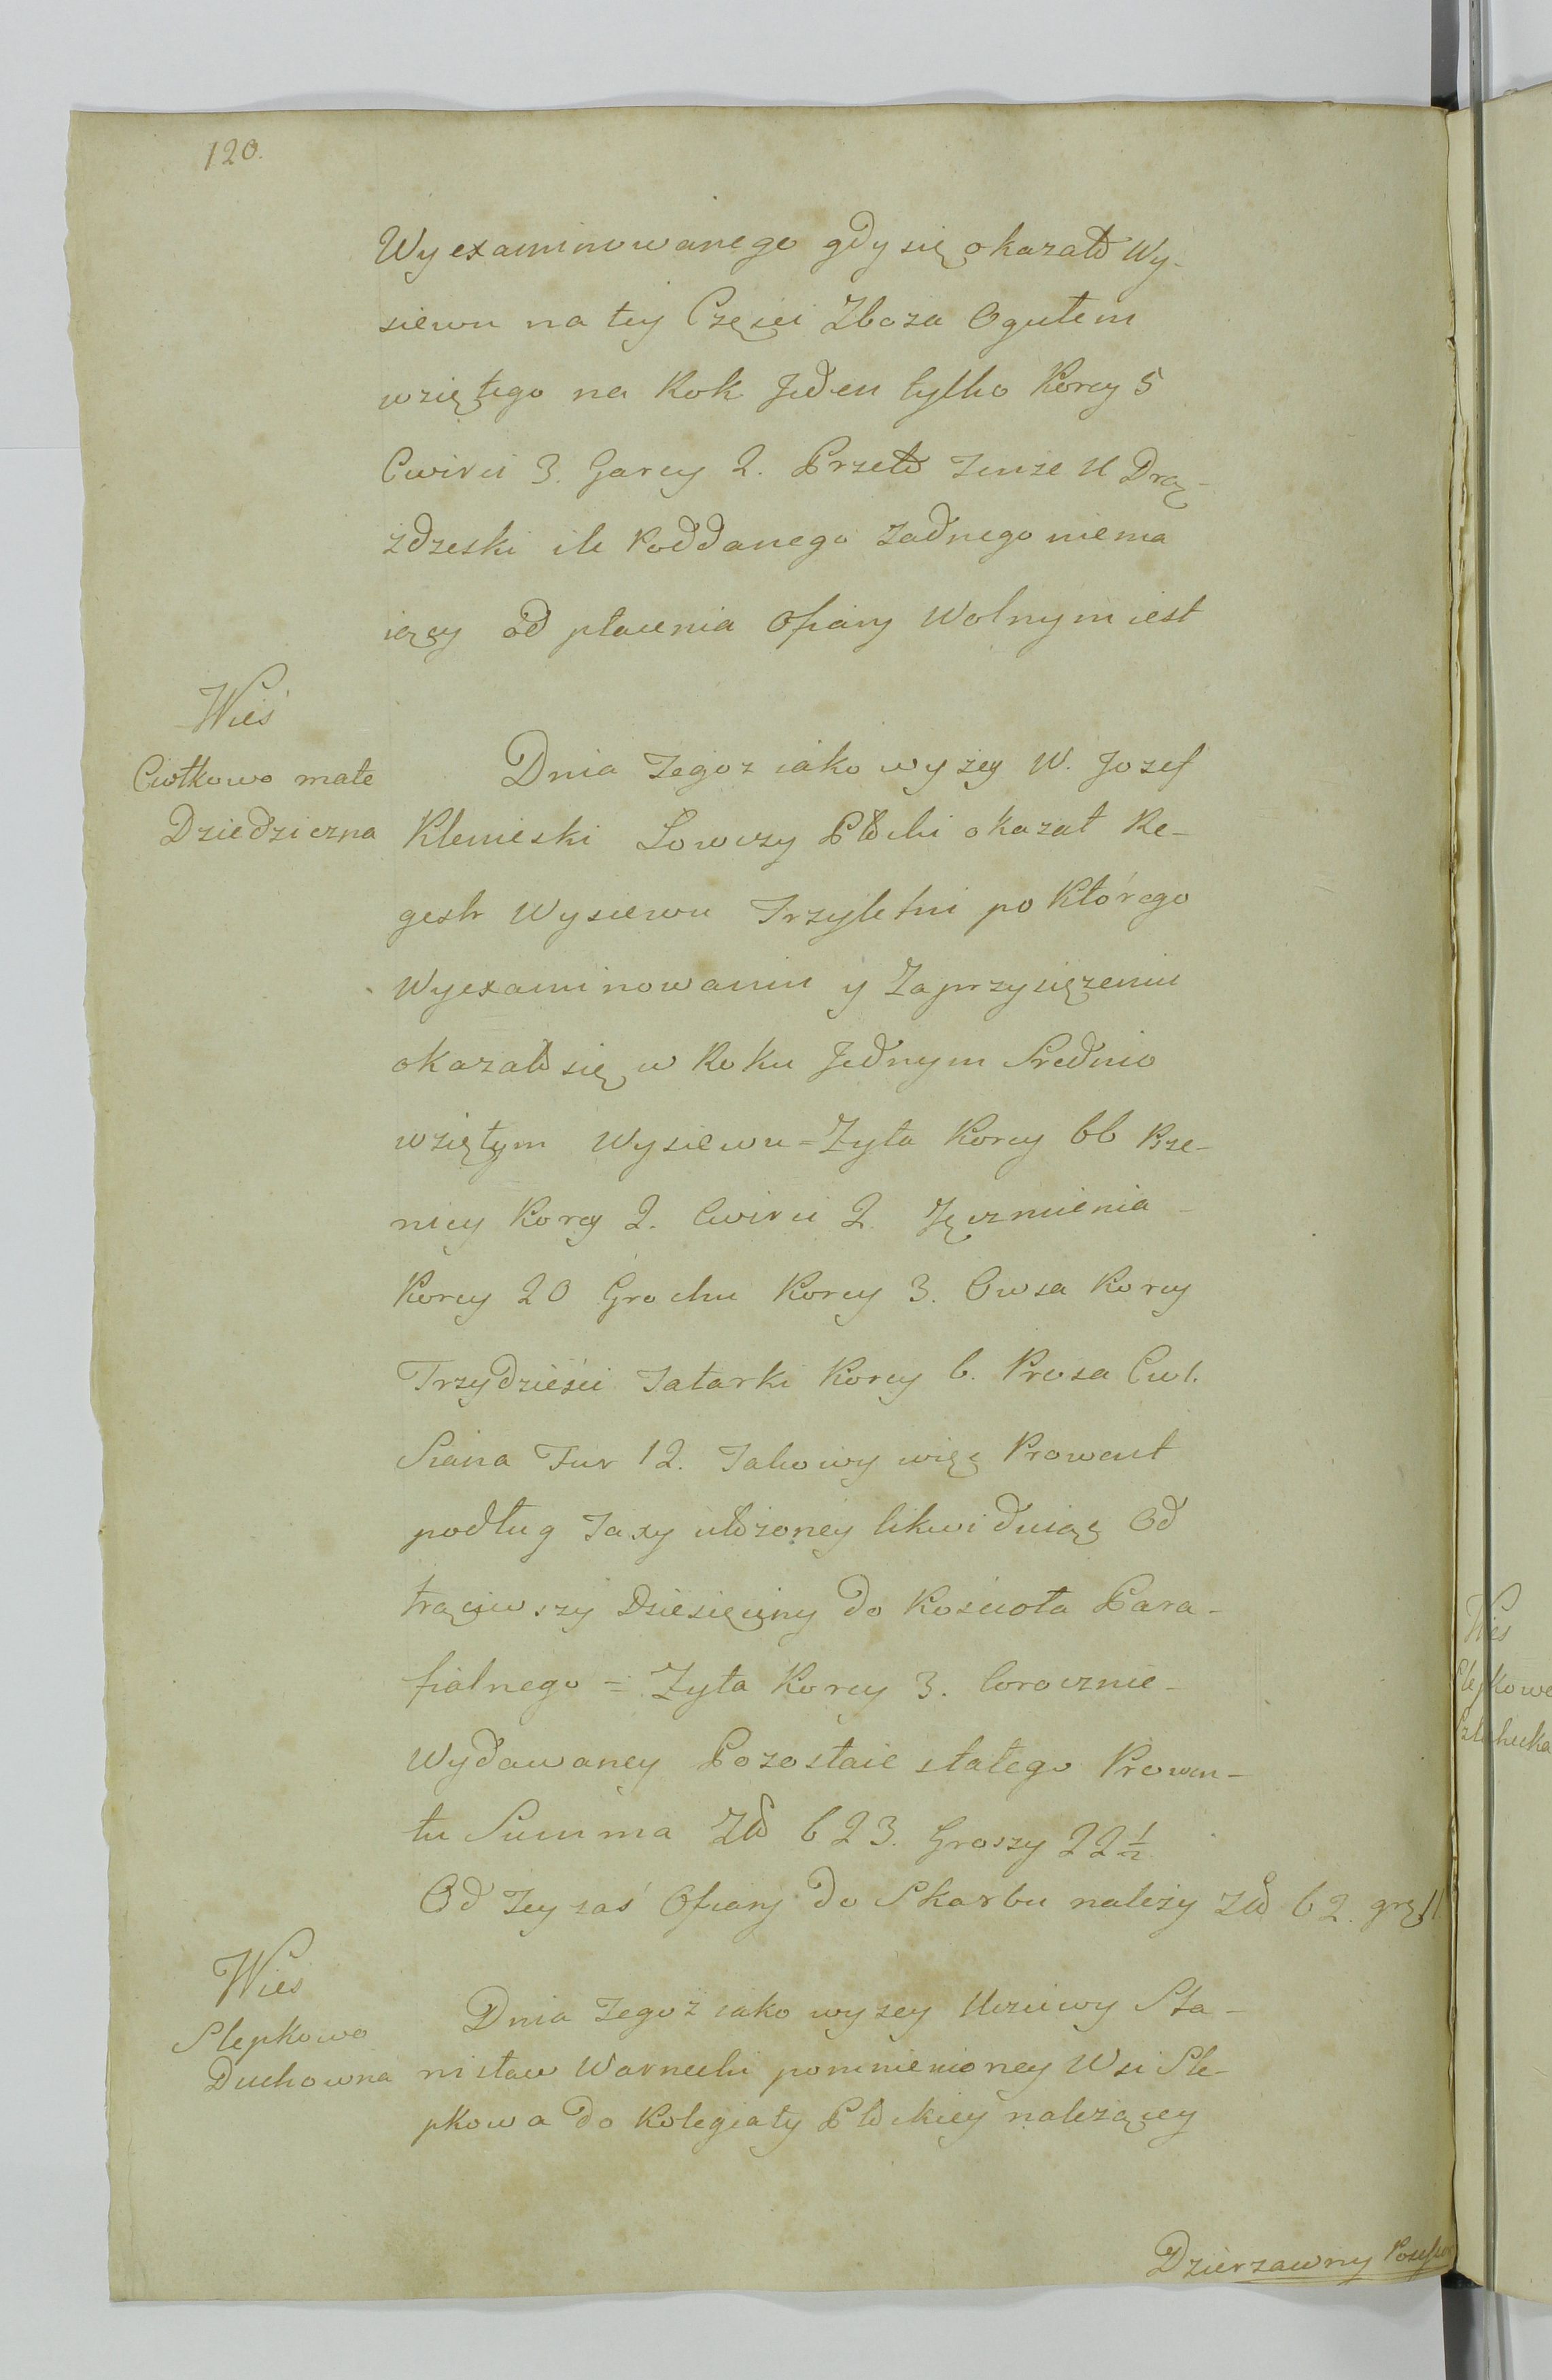 120.
Wyexaminowanego gdy się okazało Wy-
siewu na tey Części Zboża Ogułem
wziętego na Rok Jeden tylko Korcy 5
Cwierci 3. Garcy 2. Przeto Tenże U Drą-
żdzeski ile Poddanego żadnego niema
iący od płacenia Ofiary Wolnym iest
Wieś
Ciołkowo małe
Dziedziczna
Dnia Tegoż iako wyżey W. Jozef
Klenieski Łowczy Płocki okazał Re-
gestr Wysiewu Trzyletni po Którego
Wyexaminowaniu y Zaprzysiężeniu
okazało się w Roku Jednym Srednio
wziętym Wysiewu = Zyta Korcy 66 Psze-
nicy Korcy 2. Cwierci 2. Jęczmienia -
Korcy 20 Grochu Korcy 3. Owsa Korcy
Trzydzieści Tatarki Korcy 6. Prosa Cw 1.
Siana Fur 12. Takowy więc Prowent
podług Taxy ułożoney likwiduiąc Od
trąciwszy Dziesięciny do Kościoła Para-
fialnego = Zyta Korcy 3. Corocznie -
Wydawaney Pozostaie stałego Prowen-
tu Summa Zło 623. Groszy 22 1/2
Od Tey zaś Ofiary do Skarbu należy Zło 62. grz 11
Wieś
Slepkowo
Duchowna
Dnia Tegoż iako wyżey Uczciwy Sta-
nisław Warnecki pomienioney Wsi Sle-
pkowa do Kolegiaty Płockiey należącey
Dzierzawny Possessor